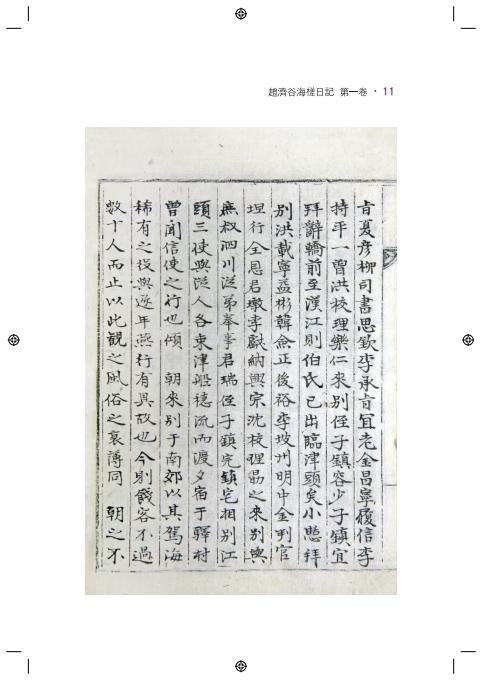 趙濟谷海槎日記 第一卷 · 11
旨夏彦柳司書思欽李承旨冝老金昌寧履信李
持平一曾洪校理樂仁来別侄子鎮容少子鎮宜
拜辭轎前至漢江則伯氏已出臨津頭矣小憇拜
別洪載寧益彬韓僉正後裕李坡州明中金判官
坦行全恩君墩李獻納興宗沈校理昷之来別與
庶叔泗川從弟奉事君瑞侄子鎮完鎮宅相別江
頭三使與從人各束津船穩流而渡夕宿于驛村
曽聞信使之行也傾 朝来別于南郊以其駕海
稀有之役與逐年燕行有異故也今則餞客不過
數十人而止以此観之風俗之衰薄同 朝之不